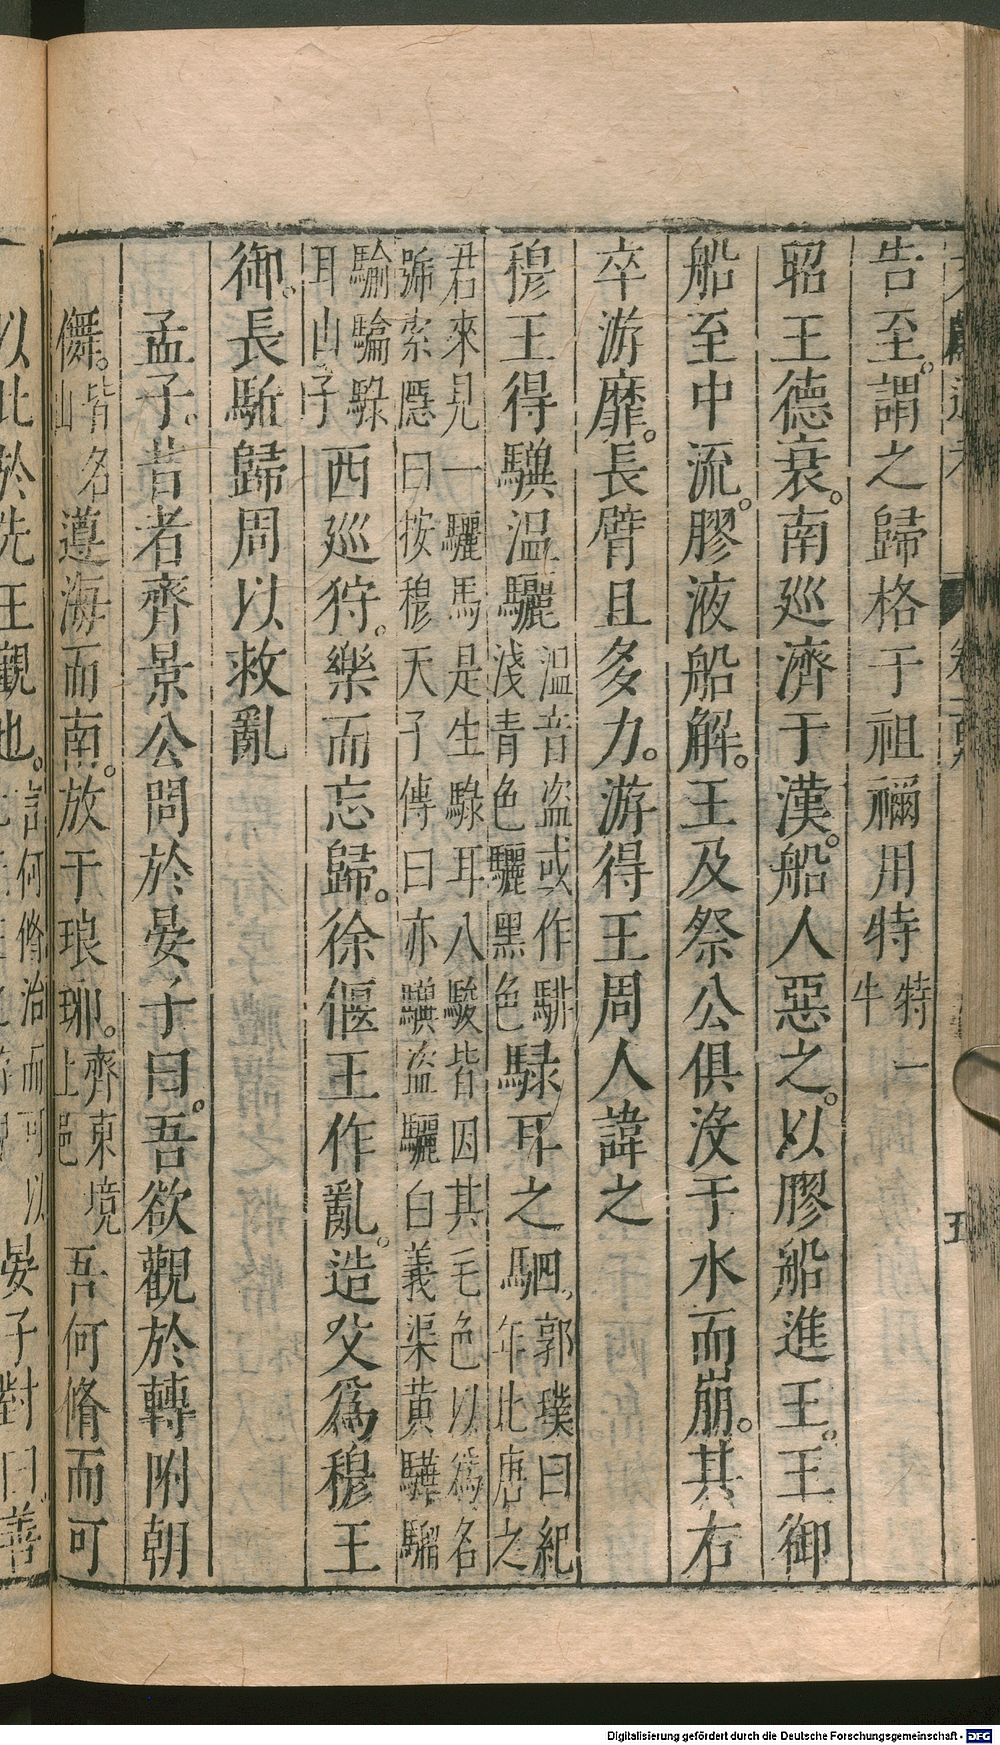 告至。謂之歸格于祖禰用特特一牛
昭王德衰。南巡濟于漢。船人惡之。以膠船進王。王御
船至中流。膠液船解。王及祭公俱沒于水而崩。其右
卒游靡。長臂且多力。游得王周人諱之
穆王得驥溫驪溫音盜或作駣淺青色驪黑色騄耳之駟。郭璞曰紀年北唐之
君來見一驪馬是生騄耳八駿皆因其毛色以為名
號索隱曰按穆天子傳曰亦驥盜驪白義渠黃驊騮
騟騄
耳山子西巡狩。樂而忘歸。徐偃王作亂。造父為穆王
御。長駈歸周以救亂
孟子。昔者齊景公問於晏子曰。吾欲觀於轉附朝
儛。皆山名遵海而南。放于琅琊。齊東境上邑吾何脩而可
以此於先王觀也。言何脩治而可以晏子對曰。善
Digitalisierung gefördert durch die Deutsche Forschungsgemeinschaft - DFG